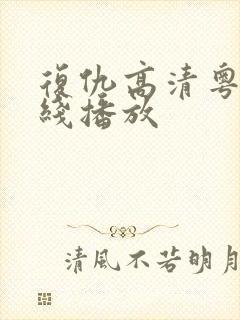 復仇高清粵
綫播放
清風不若明月